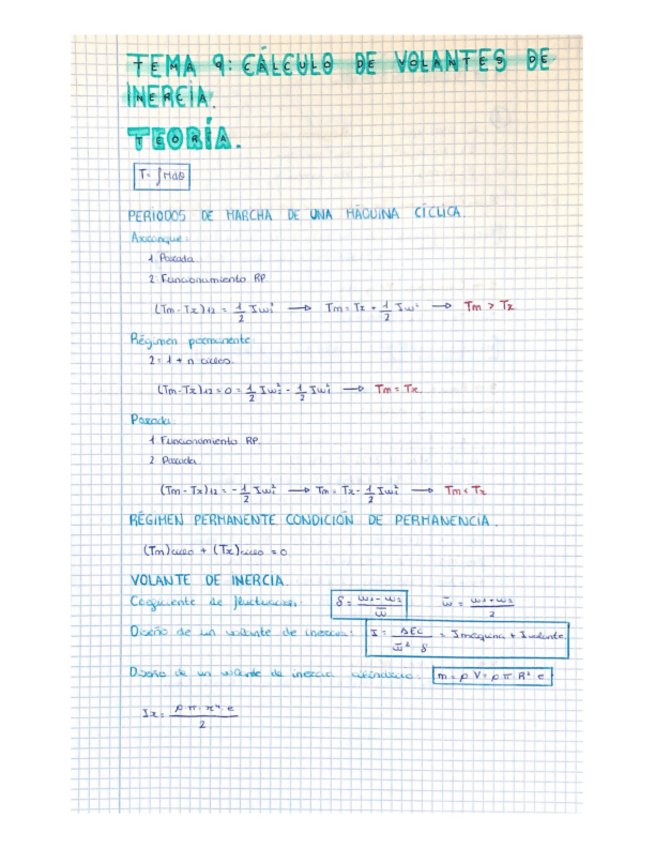 TEMA 9: CÁLCULO DE VOLANTES DE
INERCIA.
TEORÍA.
T = ∫Mdθ
PERIODOS DE MARCHA DE UNA MÁQUINA CÍCLICA.
Arranque:
1 Parada
2 Funcionamiento RP.
(Tm - Tr)12 = 1/2 Iω² → Tm = Tr + 1/2 Iω² → Tm > Tr
Régimen permanente
2 = 1 + n ciclos.
(Tm - Tr)12 = 0 = 1/2 Iω₂² - 1/2 Iω₁² → Tm = Tr.
Parada
1 Funcionamiento RP.
2 Parada
(Tm - Tr)12 = - 1/2 Iω₁² → Tm = Tr - 1/2 Iω₁² → Tm < Tr
RÉGIMEN PERMANENTE CONDICIÓN DE PERMANENCIA.
(Tm)ciclo + (Tr)ciclo = 0
VOLANTE DE INERCIA.
Coeficiente de fluctuación: δ = ω₁ - ω₂ / ω̄ ω̄ = ω₁ + ω₂ / 2
Diseño de un volante de inercia: I = ΔEc / ω̄² δ = Imáquina + Ivolante.
Diseño de un volante de inercia cilíndrico: m = ρ V = ρ π R² e
Iz = ρ · π · r⁴ e / 2